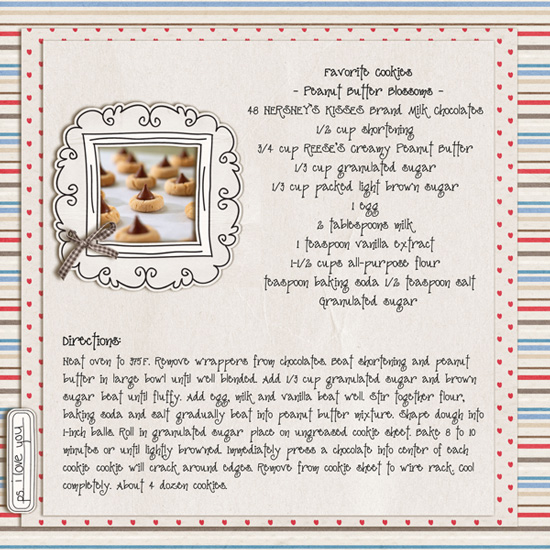 Favorite Cookies
- Peanut Butter Blossoms -
48 HERSHEY'S KISSES Brand Milk Chocolates
1/2 cup shortening
3/4 cup REESE'S Creamy Peanut Butter
1/3 cup granulated sugar
1/3 cup packed light brown sugar
1 egg
2 tablespoons milk
1 teaspoon vanilla extract
1-1/2 cups all-purpose flour
teaspoon baking soda 1/2 teaspoon salt
Granulated sugar
Directions:
Heat oven to 375 F. Remove wrappers from chocolates. Beat shortening and peanut
butter in large bowl until well blended. Add 1/3 cup granulated sugar and brown
sugar beat until fluffy. Add egg, milk and vanilla beat well. Stir together flour,
baking soda and salt gradually beat into peanut butter mixture. Shape dough into
1-inch balls. Roll in granulated sugar place on ungreased cookie sheet. Bake 8 to 10
minutes or until lightly browned. Immediately press a chocolate into center of each
cookie cookie will crack around edges. Remove from cookie sheet to wire rack. Cool
completely. About 4 dozen cookies.
ps. i love you